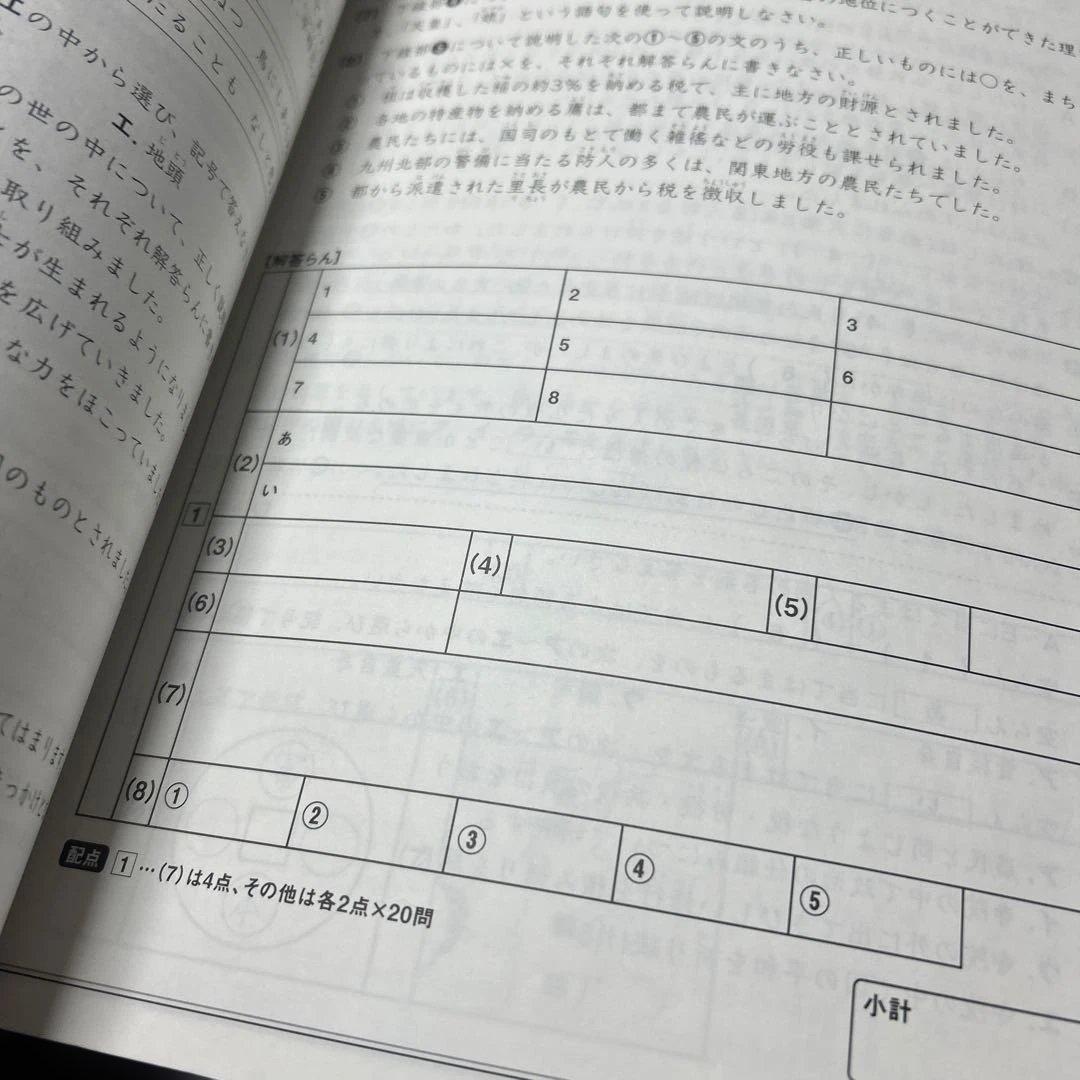 上の中から選び、記号で答えな
エ・地頭
の世の中について、正しく
を、それぞれ解答らんに書き
取り組みました。
が生まれるようになりま
を広げていきました。
な力をほこっていまし
のものとされまし
てはまります
の地位につくことができた理
「天皇」、「娘」という語句を使って説明しなさい。
について説明した次の①〜⑤の文のうち、正しいものには○を、まち
ているものには×を、それぞれ解答らんに書きなさい。
租は収穫した稲の約3%を納める税で、主に地方の財源とされました。
② 各地の特産物を納める庸は、都まで農民が運ぶこととされていました。
③ 農民たちには、国司のもとで働く雑徭などの労役も課せられました。
④ 九州北部の警備に当たる防人の多くは、関東地方の農民たちでした。
⑤ 都から派遣された里長が農民から税を徴収しました。
[解答らん]
1
(1) 1 2 3
4 5 6
7 8
(2) あ
い
(3) (4) (5)
(6)
(7)
(8) ① ② ③ ④ ⑤
配点 1…(7)は4点、その他は各2点×20問
小計